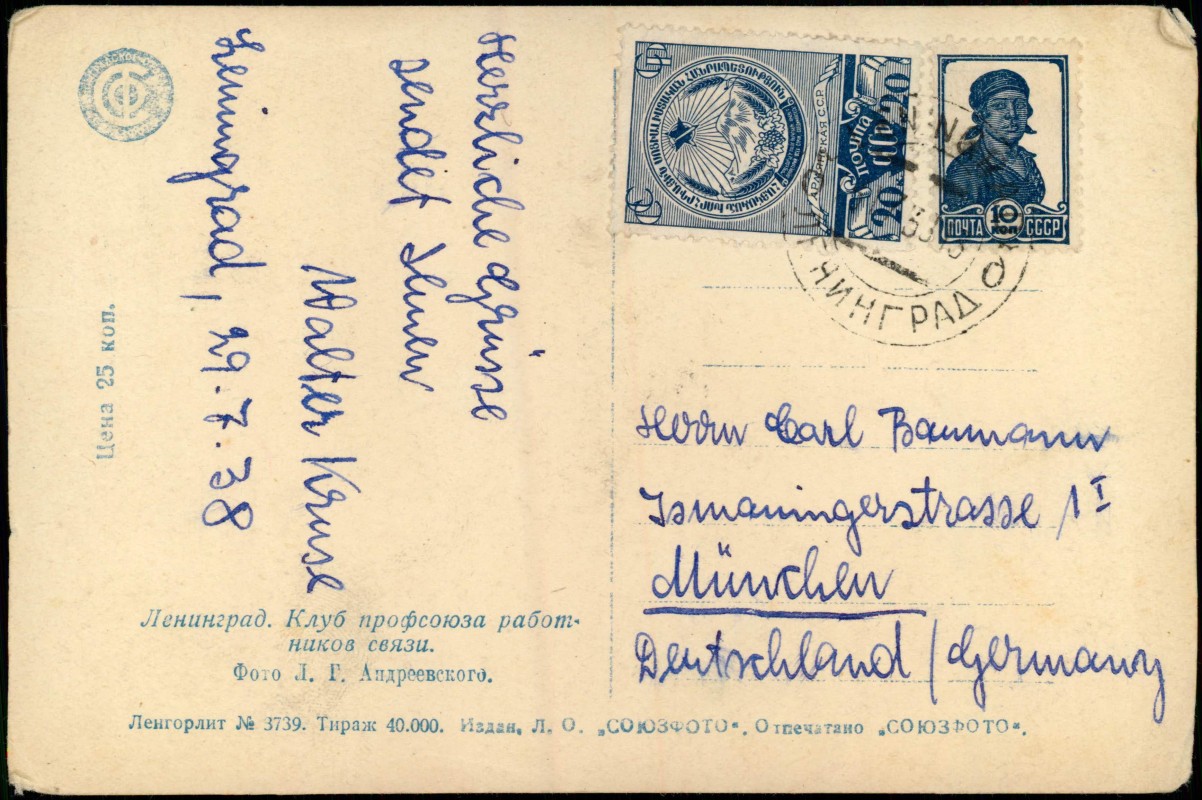 Herzliche Grüsse
sendet Ihnen
Walter Kruse
Leningrad, 29.7.38
Цена 25 коп.
ПОЧТА
СССР
20 20
АРМЯНСКАЯ ССР
10
КОП
ПОЧТА СССР
ЛЕНИНГРАД
Herrn Carl Baumann
Ismaningerstrasse 1 I
München
Deutschland / Germany
Ленинград. Клуб профсоюза работ-
ников связи.
Фото Л. Г. Андреевского.
Ленгорлит № 3739. Тираж 40.000. Издан. Л. О. „СОЮЗФОТО“. Отпечатано „СОЮЗФОТО“.